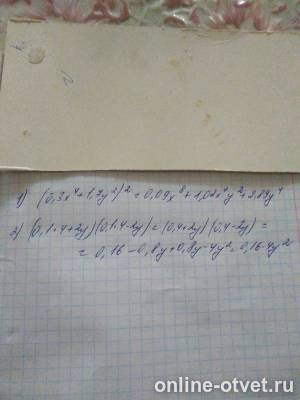 1) (0,3x⁴+1,7y²)² = 0,09x⁸+1,02x⁴y²+2,89y⁴
2) (0,1·4+2y)(0,1·4-2y)=(0,4+2y)(0,4-2y)=
= 0,16-0,8y+0,8y-4y²=0,16-4y²
online-otvet.ru